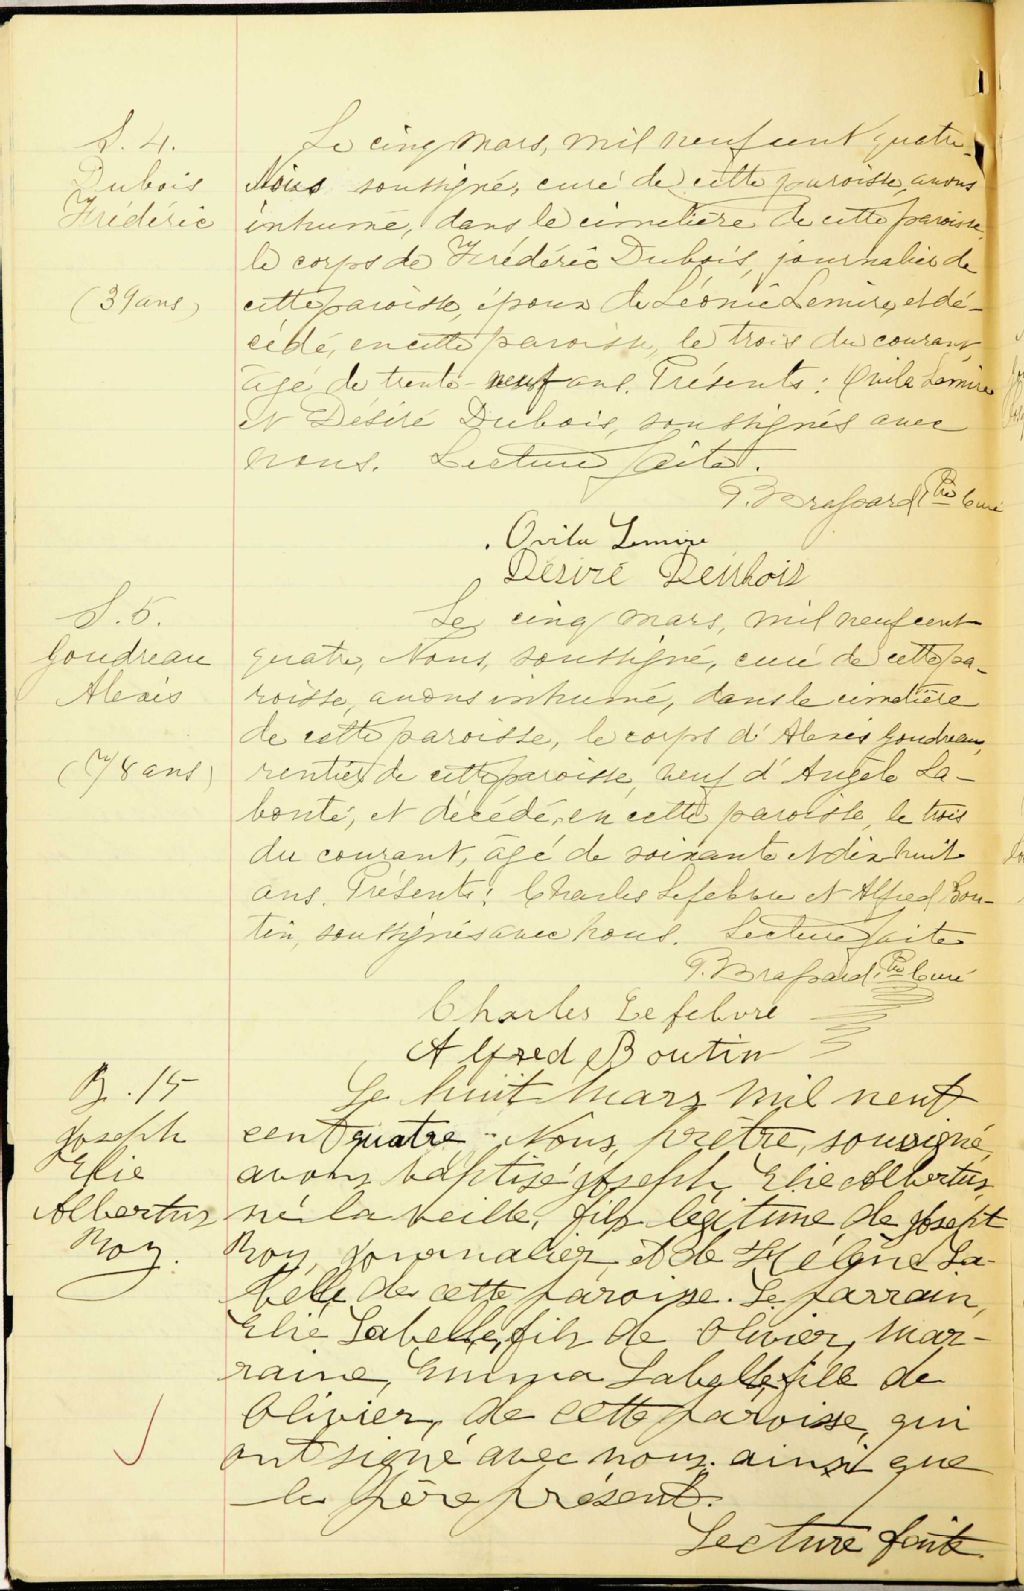 S. 4.
Dubois
Frédéric
(39 ans)
Le cinq mars, mil neuf cent quatre
Nous soussigné, curé de cette paroisse, avons
inhumé, dans le cimetière de cette paroisse,
le corps de Frédéric Dubois, journalier de
cette paroisse, époux de Léonie Lemire, et dé-
cédé, en cette paroisse, le trois du courant,
âgé de trente-neuf ans. Présents: Ovila Lemire
et Désiré Dubois, soussignés avec
nous. Lecture faite.
P. Brassard, Ptre Curé
Ovila Lemire
Désiré Deubois
S. 5.
Goudreau
Alexis
(78 ans)
Le cinq mars, mil neuf cent
quatre, Nous, soussigné, curé de cette pa-
roisse, avons inhumé, dans le cimetière
de cette paroisse, le corps d'Alexis Goudreau,
rentier de cette paroisse, veuf d'Angèle La-
bonté, et décédé, en cette paroisse, le trois
du courant, âgé de soixante et dix huit
ans. Présents: Charles Lefebvre et Alfred Bou-
tin, soussignés avec nous. Lecture faite
P. Brassard, Ptre Curé
Charles Lefebvre
Alfred Boutin
B. 15
Joseph
Elie
Albertus
Roy.
Le huit mars mil neuf
cent quatre Nous, prêtre, sousigné,
avons baptisé Joseph, Elie Albertus,
né la veille, fils légitime de Joseph
Roy, journalier, et de Hélène La-
belle de cette paroisse. Le parrain,
Elie Labelle, fils de Olivier, mar-
raine, Emma Labelle, fille de
Olivier, de cette paroisse, qui
ont signé avec nous ainsi que
le père présent.
Lecture faite